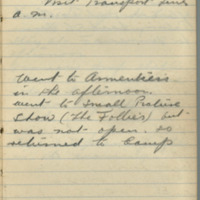 Transport lines
a.m.
Went to Armentiers
in the afternoon.
went to small Picture
Show (The Follies) but
was not open. so
returned to Camp